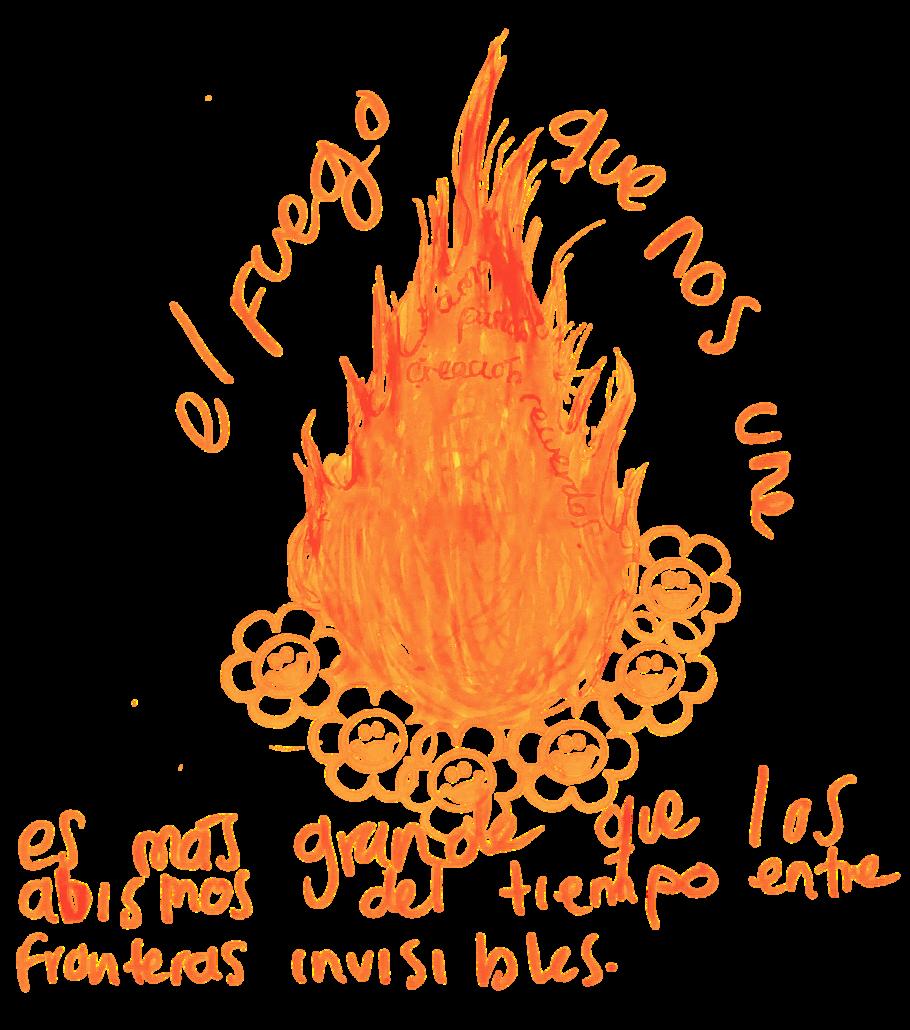 el fuego que nos une
creación
recuerdos
es más grande que los
abismos del tiempo entre
fronteras invisibles.